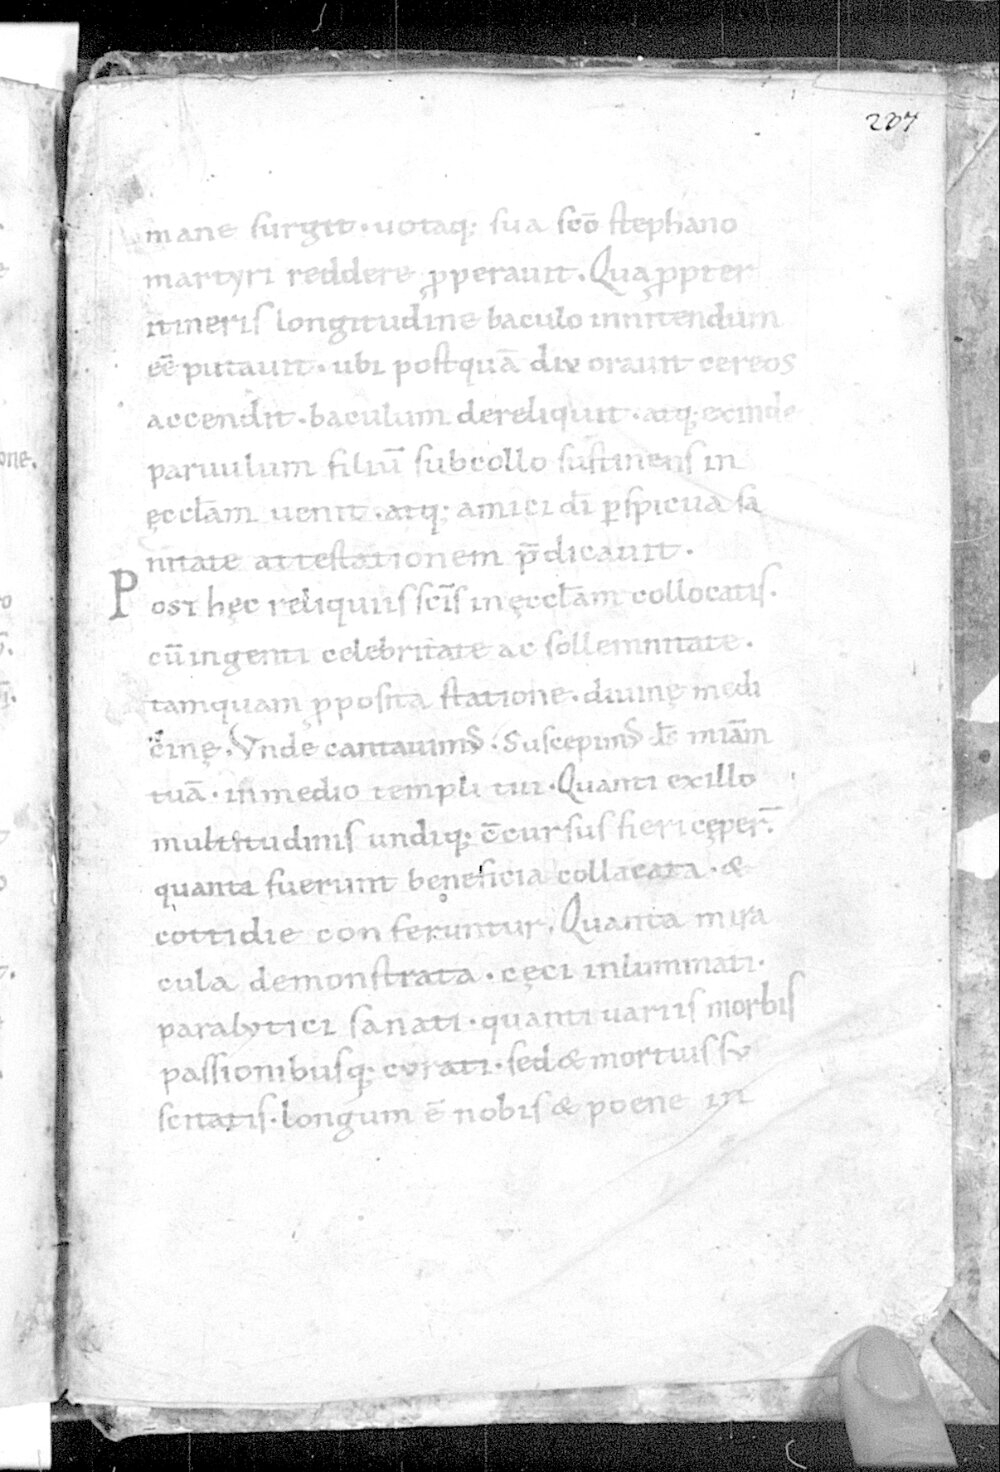 207
mane surgit · uotaq; sua scō stephano
martyri reddere ꝓperauit . Quaꝓpter
itineris longitudine baculo innitendum
eē putauit · ubi postquā diu orauit cereos
accendit · baculum dereliquit · atq; exinde
paruulum filiū sub collo sustinens in
ęccłam uenit · atq; amici dī ꝑspicua sa
nitate attestationem p̄dicauit .
Post hęc reliquiis scīs in ęccłam collocatis .
cū ingenti celebritate ac sollemnitate .
tamquam ꝓposita statione · diuinę medi
cinę . Vnde cantauimꝰ . Suscepimꝰ d̄s miām
tuā · in medio templi tui · Quanti ex illo
multitudinis undiq; c̄cursus fieri cęper̄ .
quanta fuerunt beneficia collacata · &
cottidie conferuntur . Quanta mira
cula demonstrata · cęci inluminati .
paralytici sanati · quanti uariis morbis
passionibusq; curati · sed & mortuis su
scitatis · longum ē nobis & poene in
one.